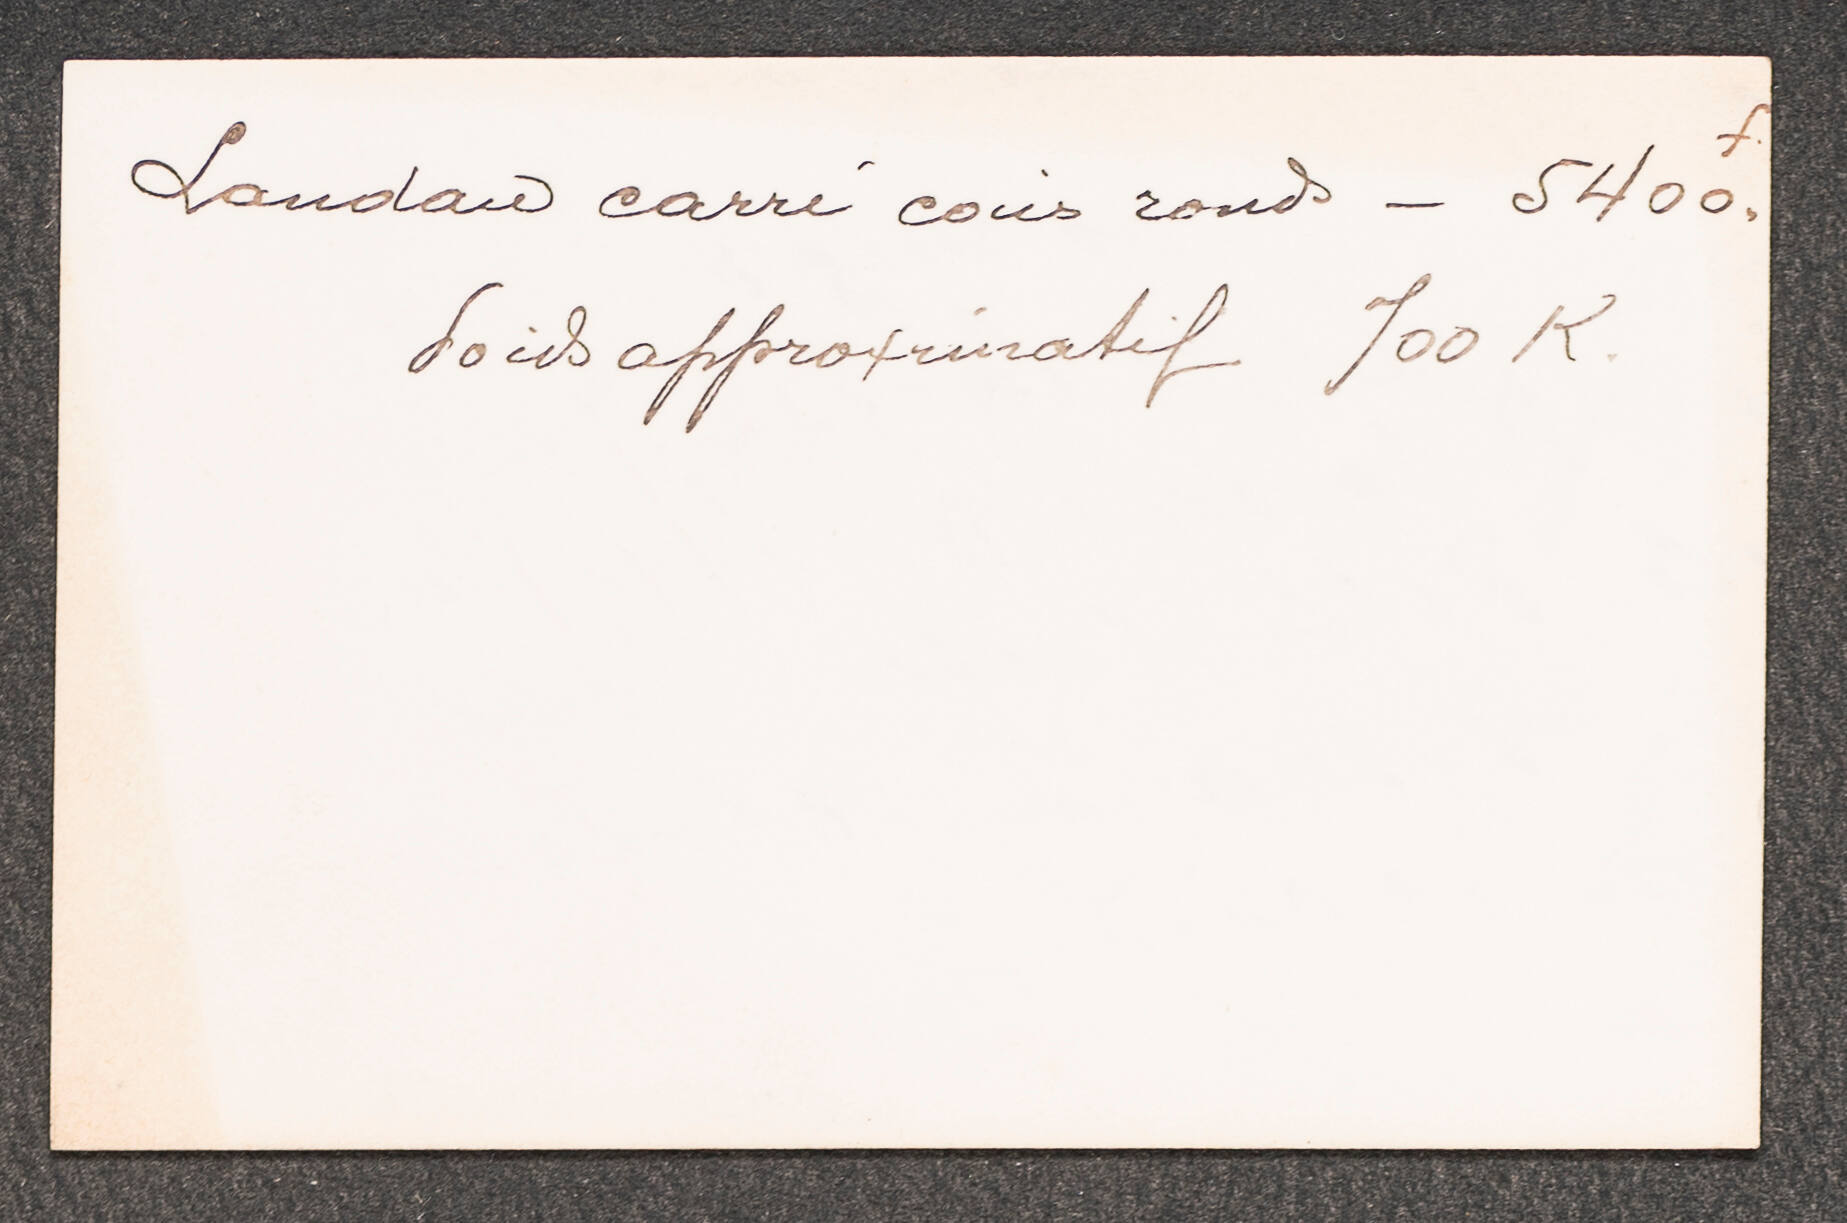 Landau carré coins ronds - 5400.f.
Poids approximatif 700 K.